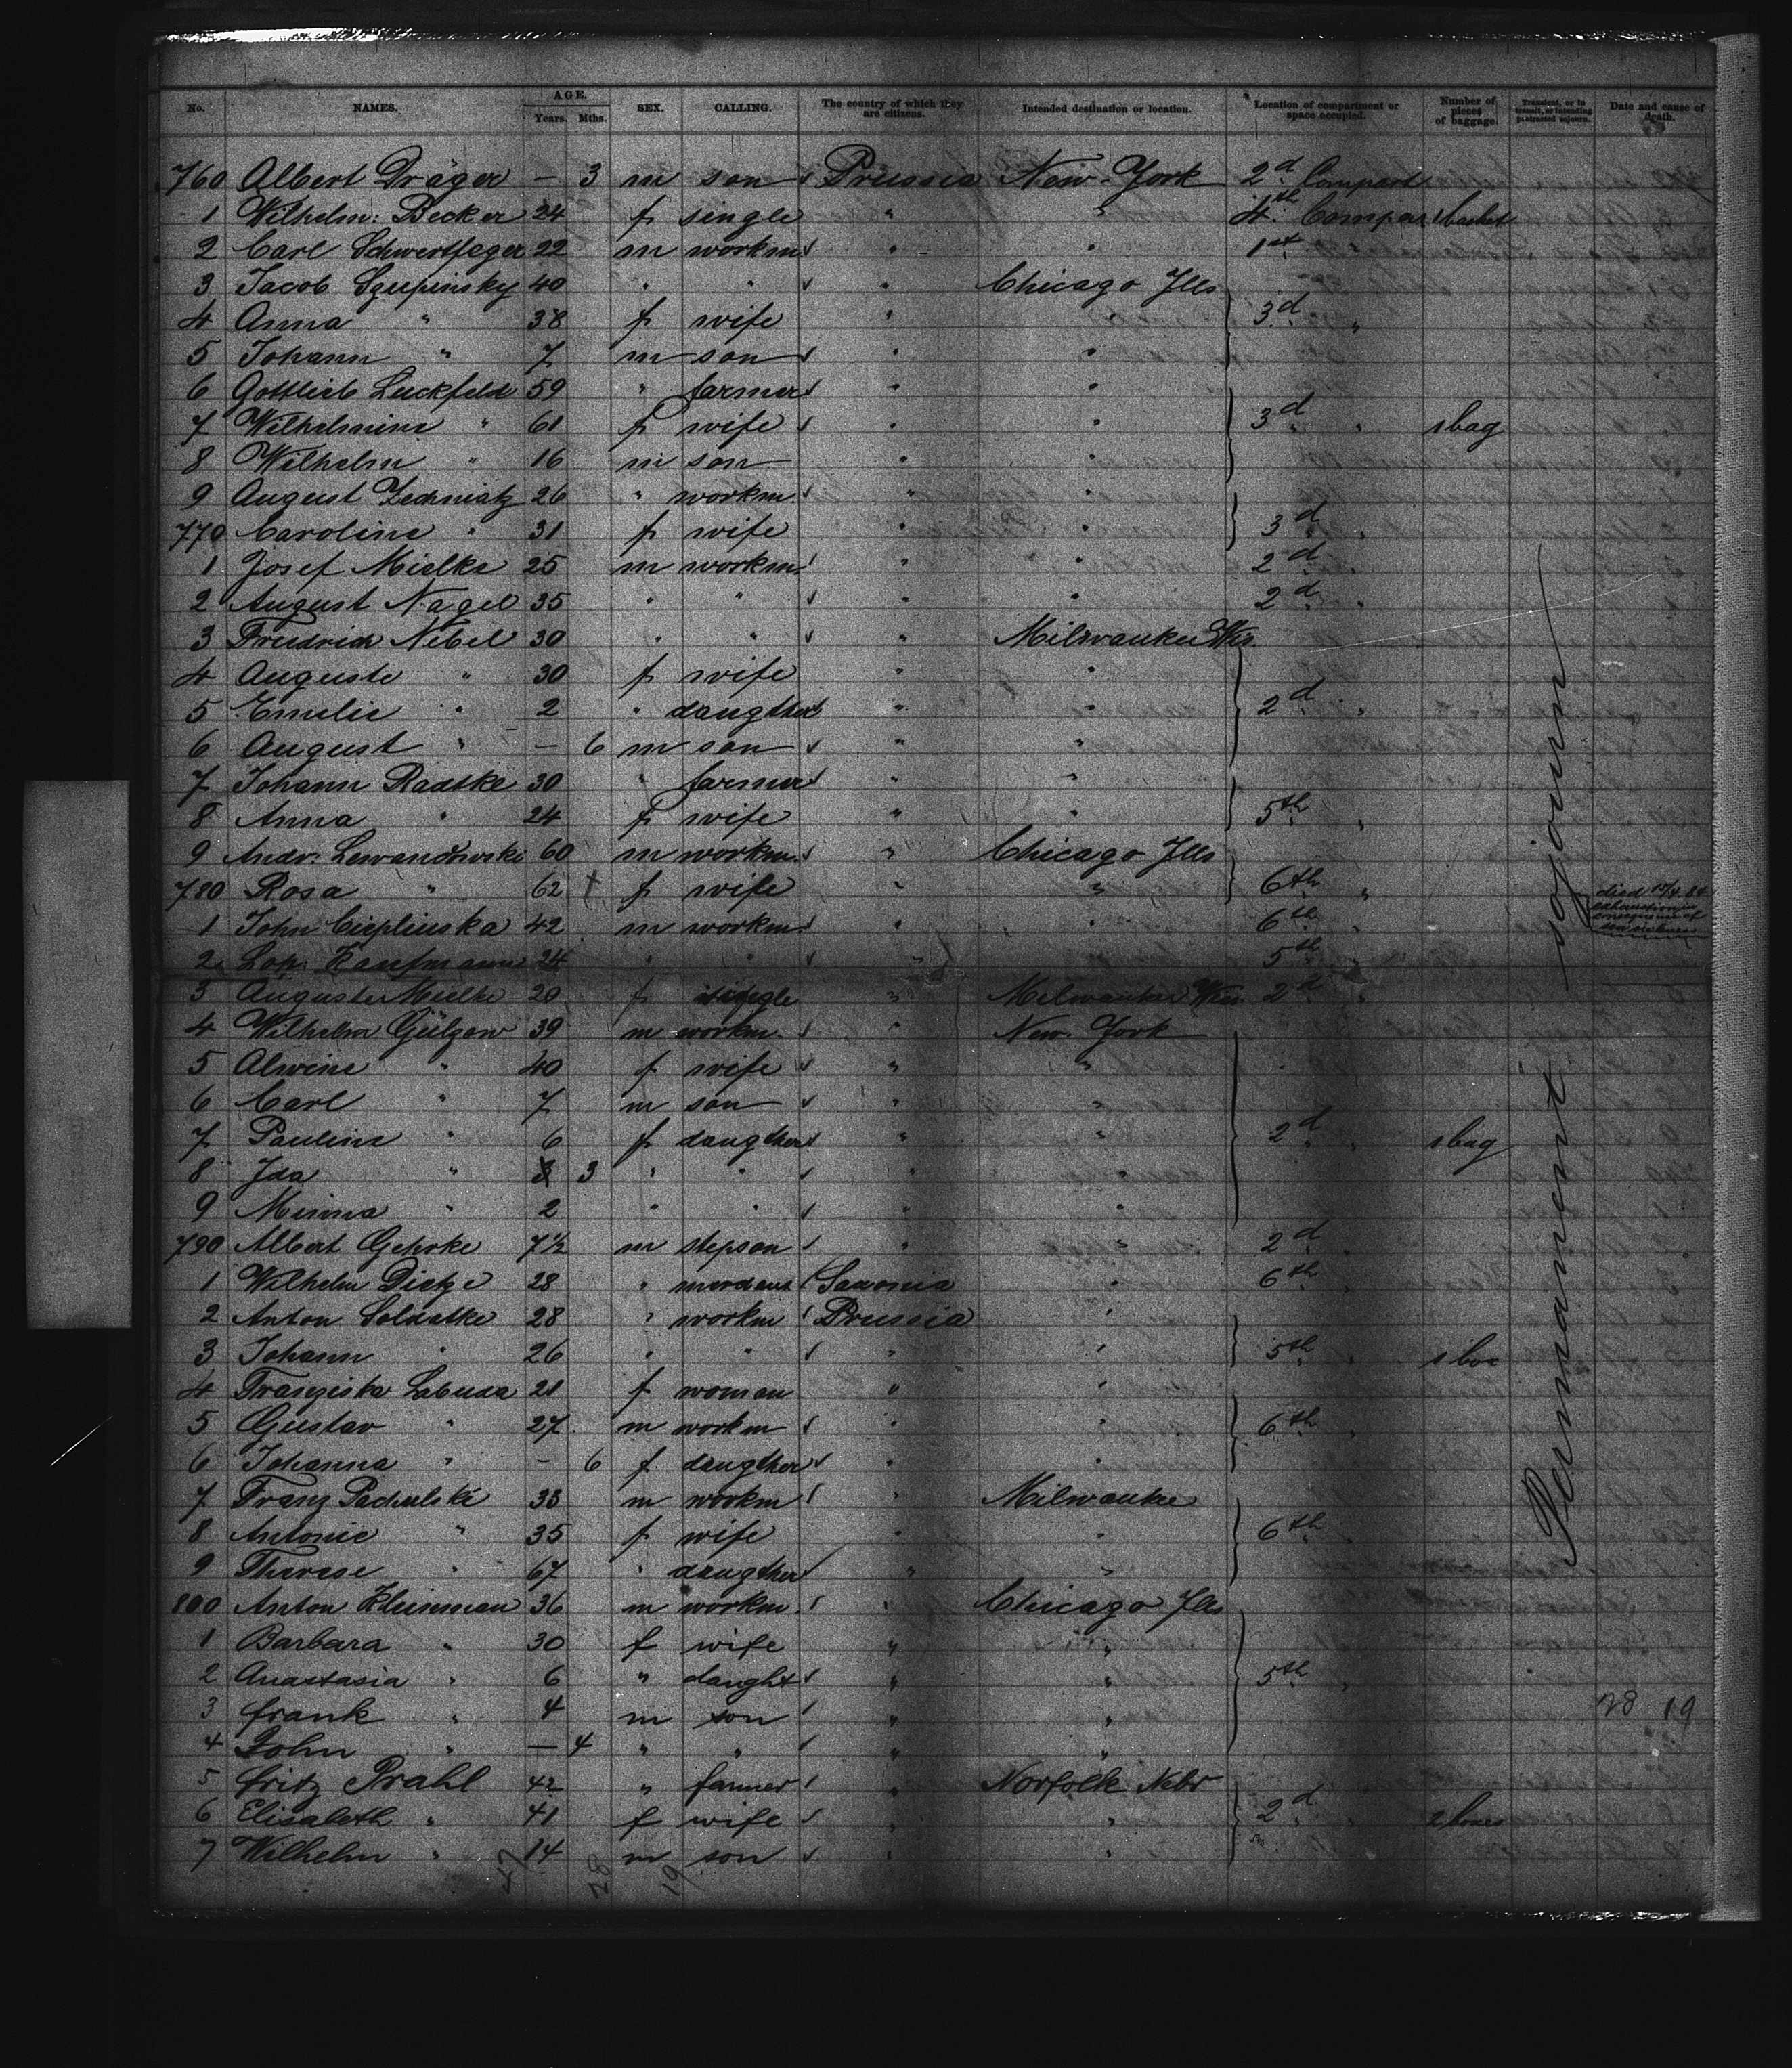 No. NAMES. AGE. Years. Mths. SEX. CALLING. The country of which they are citizens. Intended destination or location. Location of compartment or space occupied. Number of pieces of baggage. Transient, or in transit, or intending protracted sojourn. Date and cause of death.
760 Albert Dräger — 3 m son Prussia New-York 2d Compart
1 Wilhelm: Becker 24 f single " " 4th Compar 1 basket
2 Carl Schwertfeger 22 m workm " " 1st
3 Jacob Szupinsky 40 " " " Chicago Ills
4 Anna " 38 f wife " " 3d "
5 Johann " 7 m son " "
6 Gottlieb Luckfeld 59 " farmer " "
7 Wilhelmine " 61 f wife " " 3d " 1 bag
8 Wilhelm " 16 m son " "
9 August Zechniatz 26 " workm " "
770 Caroline " 31 f wife " " 3d "
1 Josef Mielke 25 m workm " " 2d "
2 August Nagel 35 " " " " 2d "
3 Friedrich Nebel 30 " " " Milwaukee Wis.
4 Auguste " 30 f wife " "
5 Emelie " 2 " daugther " " 2d "
6 August " — 6 m son " "
7 Johann Radtke 30 " farmer " "
8 Anna " 24 f wife " " 5th "
9 Andr: Lewandowski 60 m workm " Chicago Ills
780 Rosa " 62 f wife " " 6th " died exhaustion in consequence of
1 John Cieplinska 42 m workm " " 6th "
2 Kaufmann 24 " " " 5th "
3 Auguste Mielke 20 f single " Milwaukee Wis 2d "
4 Wilhelm Gülzow 39 m workm " New-York
5 Alwine " 40 f wife " "
6 Carl " 7 m son " "
7 Pauline " 6 f daugther " " 2d " 1 bag
8 Ida " 3 " " " "
9 Minna " 2 " " " "
790 Albert Gehrke 7½ m stepson " " 2d "
1 Wilhelm Dietze 28 " Saxonia " 6th "
2 Anton Soldatke 28 " workm Prussia "
3 Johann " 26 " " " " 5th " 1 box
4 Franziska Labuda 21 f woman " "
5 Gustav " 27 m workm " " 6th "
6 Johanna " — 6 f daugther " "
7 Franz Pachulski 33 m workm " Milwaukee
8 Antonie " 35 f wife " " 6th "
9 Therese " 67 " daugther " "
800 Anton Kleinman 36 m workm " Chicago Ills
1 Barbara " 30 f wife " "
2 Anastasia " 6 " daught " " 5th "
3 frank " 4 m son " "
4 John " — 4 " " " "
5 fritz Prahl 42 " farmer " Norfolk Nebr
6 Elisabeth " 41 f wife " " 2d " 2 boxes
7 Wilhelm " 14 m son " "
Permanent sojourn
28 19
47 28 19